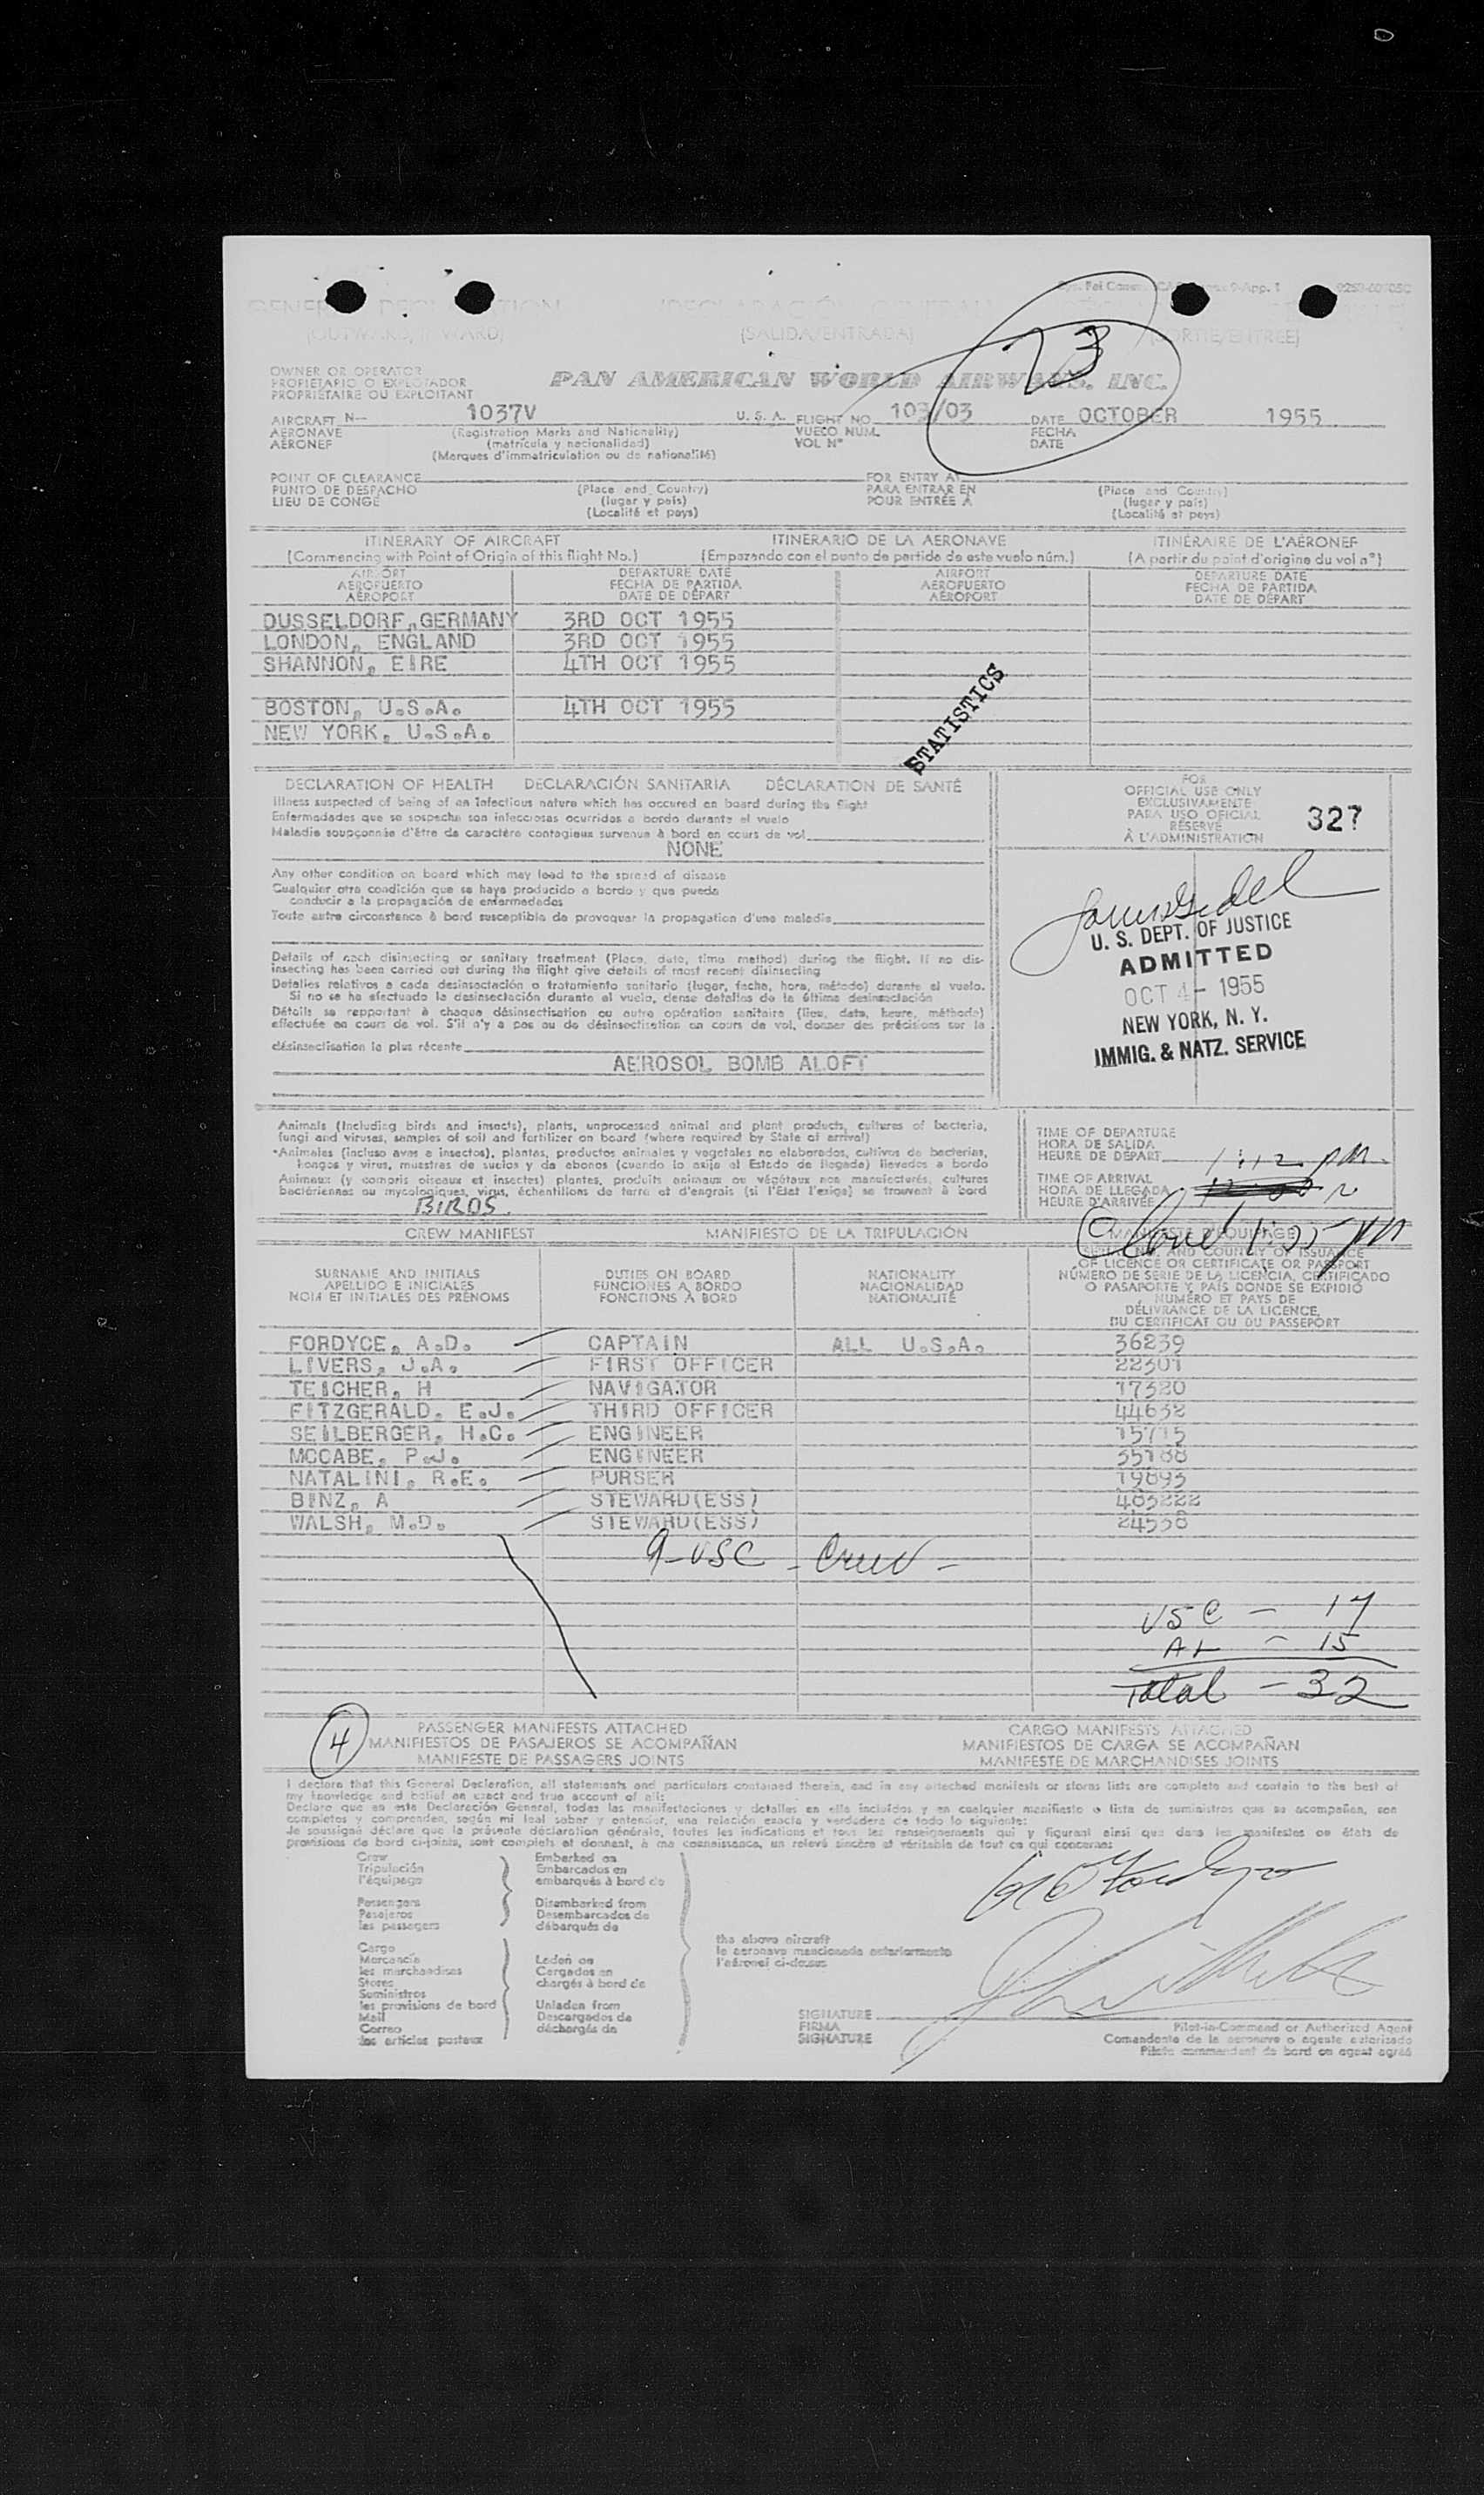 23
(SALIDA/ENTRADA)
OWNER OR OPERATOR
PROPIETARIO O EXPLOTADOR
PROPRIETAIRE OU EXPLOITANT
PAN AMERICAN WORLD AIRWAYS, INC.
AIRCRAFT N— 1037V U. S. A. FLIGHT NO. 103/03 DATE OCTOBER 1955
AERONAVE (Registration Marks and Nationality) VUELO NÚM. FECHA
AÉRONEF (matrícula y nacionalidad) VOL N° DATE
(Marques d'immatriculation ou de nationalité)
POINT OF CLEARANCE FOR ENTRY AT
PUNTO DE DESPACHO (Place and Country) PARA ENTRAR EN (Place and Country)
LIEU DE CONGÉ (lugar y país) POUR ENTRÉE À (lugar y país)
(Localité et pays) (Localité et pays)
ITINERARY OF AIRCRAFT ITINERARIO DE LA AERONAVE ITINÉRAIRE DE L'AÉRONEF
(Commencing with Point of Origin of this flight No.) (Empezando con el punto de partida de este vuelo núm.) (A partir du point d'origine du vol n°)
AIRPORT DEPARTURE DATE AIRPORT DEPARTURE DATE
AEROPUERTO FECHA DE PARTIDA AEROPUERTO FECHA DE PARTIDA
AÉROPORT DATE DE DÉPART AÉROPORT DATE DE DÉPART
DUSSELDORF, GERMANY 3RD OCT 1955
LONDON, ENGLAND 3RD OCT 1955
SHANNON, EIRE 4TH OCT 1955
BOSTON, U.S.A. 4TH OCT 1955
NEW YORK, U.S.A.
STATISTICS
DECLARATION OF HEALTH DECLARACIÓN SANITARIA DÉCLARATION DE SANTÉ
Illness suspected of being of an infectious nature which has occured on board during the flight
Enfermedades que se sospecha son infecciosas ocurridas a bordo durante el vuelo
Maladie soupçonnée d'être de caractère contagieux survenue à bord en cours de vol
NONE
Any other condition on board which may lead to the spread of disease
Cualquier otra condición que se haya producido a bordo y que pueda
conducir a la propagación de enfermedades
Toute autre circonstance à bord susceptible de provoquer la propagation d'une maladie
Details of each disinsecting or sanitary treatment (Place, date, time method) during the flight. If no dis-
insecting has been carried out during the flight give details of most recent disinsecting
Detalles relativos a cada desinsectación o tratamiento sanitario (lugar, fecha, hora, método) durante el vuelo.
Si no se ha efectuado la desinsectación durante el vuelo, dense detalles de la última desinsectación
Détails se rapportant à chaque désinsectisation ou autre opération sanitaire (lieu, date, heure, méthode)
effectuée en cours de vol. S'il n'y a pas eu de désinsectisation en cours de vol, donner des précisions sur la
désinsectisation la plus récente
AEROSOL BOMB ALOFT
FOR
OFFICIAL USE ONLY
EXCLUSIVAMENTE
PARA USO OFICIAL
RÉSERVÉ
À L'ADMINISTRATION
327
U. S. DEPT. OF JUSTICE
ADMITTED
OCT 4 - 1955
NEW YORK, N. Y.
IMMIG. & NATZ. SERVICE
Animals (Including birds and insects), plants, unprocessed animal and plant products, cultures of bacteria,
fungi and viruses, samples of soil and fertilizer on board (where required by State of arrival)
Animales (incluso aves e insectos), plantas, productos animales y vegetales no elaborados, cultivos de bacterias,
hongos y virus, muestras de suelos y de abonos (cuando lo exija el Estado de llegada) llevados a bordo
Animaux (y compris oiseaux et insectes) plantes, produits animaux ou végétaux non manufacturés, cultures
bactériennes ou mycologiques, virus, échantillons de terre et d'engrais (si l'État l'exige) se trouvant à bord
BIRDS
TIME OF DEPARTURE
HORA DE SALIDA
HEURE DE DÉPART 1:12 PM.
TIME OF ARRIVAL
HORA DE LLEGADA
HEURE D'ARRIVÉE
CREW MANIFEST MANIFIESTO DE LA TRIPULACIÓN
SURNAME AND INITIALS DUTIES ON BOARD NATIONALITY OF LICENCE OR CERTIFICATE OR PASSPORT
APELLIDO E INICIALES FUNCIONES A BORDO NACIONALIDAD NÚMERO DE SERIE DE LA LICENCIA, CERTIFICADO
NOM ET INITIALES DES PRÉNOMS FONCTIONS À BORD NATIONALITÉ O PASAPORTE Y PAÍS DONDE SE EXPIDIÓ
NUMÉRO ET PAYS DE
DÉLIVRANCE DE LA LICENCE,
DU CERTIFICAT OU DU PASSEPORT
FORDYCE, A.D. CAPTAIN ALL U.S.A. 36239
LIVERS, J.A. FIRST OFFICER 22301
TEICHER, H NAVIGATOR 17380
FITZGERALD, E.J. THIRD OFFICER 44632
SEILBERGER, H.C. ENGINEER 15715
MCCABE, P.J. ENGINEER
NATALINI, R.E. PURSER 19893
BINZ, A STEWARD(ESS)
WALSH, M.D. STEWARD(ESS)
9-USC - Crew -
USC - 17
AL - 15
Total - 32
4
PASSENGER MANIFESTS ATTACHED CARGO MANIFESTS ATTACHED
MANIFIESTOS DE PASAJEROS SE ACOMPAÑAN MANIFIESTOS DE CARGA SE ACOMPAÑAN
MANIFESTE DE PASSAGERS JOINTS MANIFESTE DE MARCHANDISES JOINTS
I declare that this General Declaration, all statements and particulars contained therein, and in any attached manifests or stores lists are complete and contain to the best of
my knowledge and belief an exact and true account of all:
Declaro que en esta Declaración General, todas las manifestaciones y detalles en ella incluídos y en cualquier manifiesto o lista de suministros que se acompañen, son
completos y comprenden, según mi leal saber y entender, una relación exacta y verdadera de todo lo siguiente:
Je soussigné déclare que la présente déclaration générale, toutes les indications et tous les renseignements qui y figurent ainsi que dans les manifestes ou états de
provisions de bord ci-joints, sont complets et donnent, à ma connaissance, un relevé sincère et véritable de tout ce qui concerne:
Crew Embarked on
Tripulación Embarcados en
l'équipage embarqués à bord de
Passengers Disembarked from
Pasajeros Desembarcados de
les passagers débarqués de
the above aircraft
la aeronave mencionada anteriormente
l'aéronef ci-dessus
Cargo
Mercancía Laden on
les marchandises Cargados en
Stores chargés à bord de
Suministros
les provisions de bord Unladen from
Mail Descargados de
Correo déchargés de
les articles postaux
SIGNATURE
FIRMA
SIGNATURE
Pilot-in-Command or Authorized Agent
Comandante de la aeronave o agente autorizado
Pilote commandant de bord ou agent agréé